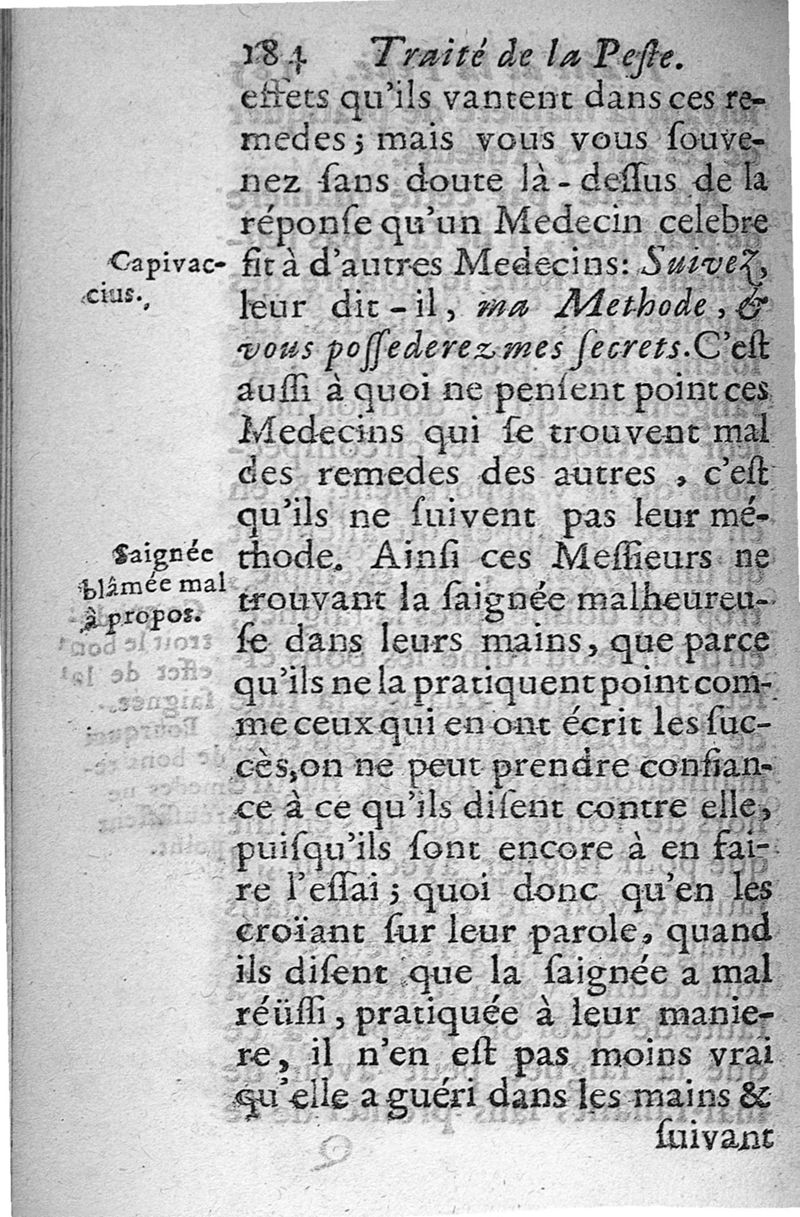 184 Traité de la Peſte.
effets qu'ils vantent dans ces re-
medes; mais vous vous ſouve-
nez ſans doute là-deſſus de la
réponſe qu'un Medecin celebre
Capivac-
cius.
fit à d'autres Medecins: Suivez,
leur dit-il, ma Methode, &
vous poſſederez mes ſecrets. C'eſt
auſſi à quoi ne penſent point ces
Medecins qui ſe trouvent mal
des remedes des autres, c'eſt
qu'ils ne ſuivent pas leur mé-
Saignée
blâmée mal
à propos.
thode. Ainſi ces Meſſieurs ne
trouvant la ſaignée malheureu-
ſe dans leurs mains, que parce
qu'ils ne la pratiquent point com-
me ceux qui en ont écrit les ſuc-
cès, on ne peut prendre confian-
ce à ce qu'ils diſent contre elle,
puiſqu'ils ſont encore à en fai-
re l'eſſai; quoi donc qu'en les
croïant ſur leur parole, quand
ils diſent que la ſaignée a mal
réüſſi, pratiquée à leur manie-
re, il n'en eſt pas moins vrai
qu'elle a guéri dans les mains &
ſuivant